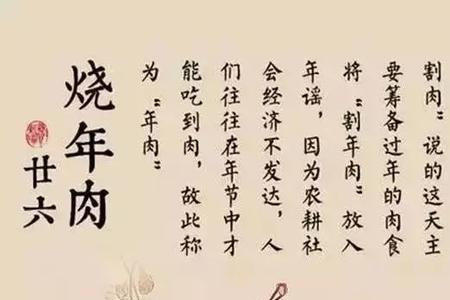 割肉”说的这天主
要筹备过年的肉食
将“割年肉”放入
年谣，因为农耕社
会经济不发达，人
们往往在年节中才
能吃到肉，故此称
为“年肉”
烧年肉
廿六